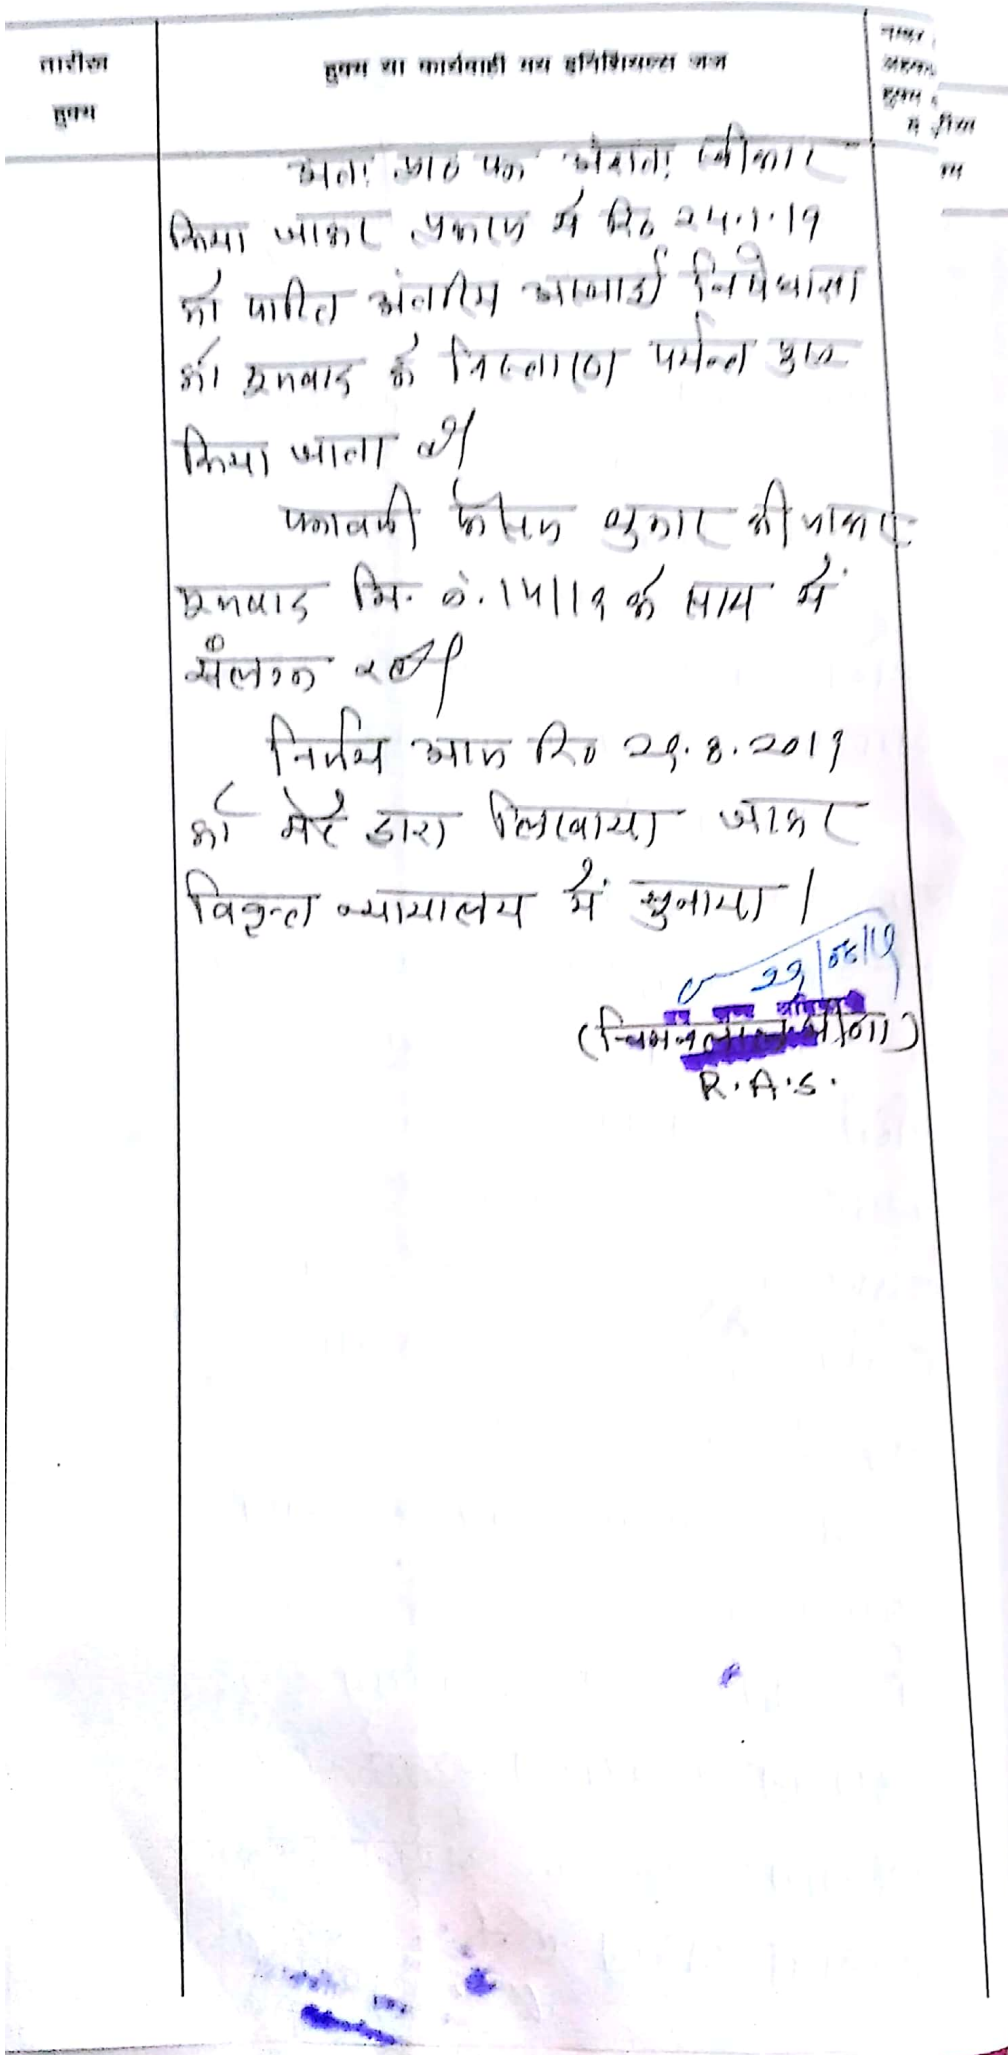 तारीख
हुक्म
हुक्म या कार्यवाही मय इनिशियल्स जज
नम्बर
हुक्म
अतः प्रा० पत्र अंशतः स्वीकार
किया जाकर प्रकरण में दि० 24.1.19
को पारित अंतरिम अस्थाई निषेधाज्ञा
को मूलवाद के निस्तारण पर्यन्त पुष्ट
किया जाता है।
पत्रावली फैसल शुमार की जाकर
मूलवाद मि. नं. 14/19 के साथ में
संलग्न रहे।
निर्णय आज दि० 29.8.2019
को मेरे द्वारा लिखाया जाकर
विवृत न्यायालय में सुनाया।
29/08/19
(चिमनलाल मीणा)
R.A.S.